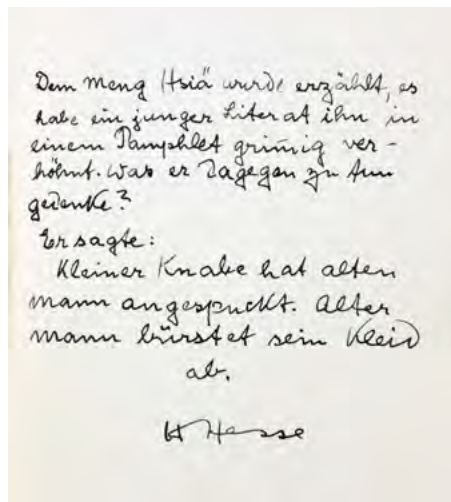 Dem Meng Hsiä wurde erzählt, es
habe ein junger Literat ihn in
einem Pamphlet grim̅ig ver-
höhnt. Was er dagegen zu tun
gedenke?
Er sagte:
Kleiner Knabe hat alten
Mann angespuckt. Alter
Mann bürstet sein Kleid
ab.
H Hesse